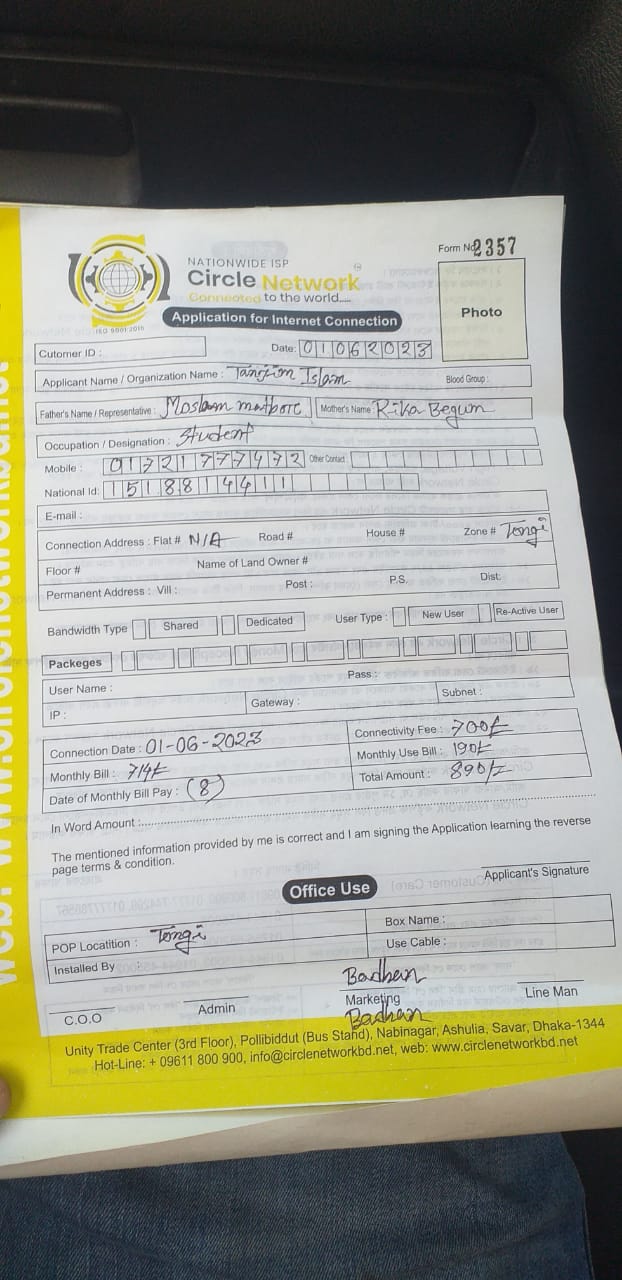 Form No 2357
NATIONWIDE ISP
Circle Network
Connected to the world....
ISO 9001:2015
Photo
Application for Internet Connection
Cutomer ID :
Date: 01062023
Applicant Name / Organization Name : Tanjim Islam
Blood Group :
Father's Name / Representative : Moslam matbore Mother's Name : Rika Begum
Occupation / Designation : Student
Mobile : 01721777472 Other Contact
National Id: 1518814411
E-mail :
Connection Address : Flat # N/A Road # House # Zone # Tongi
Floor # Name of Land Owner #
Permanent Address : Vill : Post : P.S. Dist:
Bandwidth Type Shared Dedicated User Type : New User Re-Active User
Packeges
User Name : Pass :
IP : Gateway : Subnet :
Connection Date : 01-06-2023 Connectivity Fee : 700/=
Monthly Bill : 714/= Monthly Use Bill : 190/=
Date of Monthly Bill Pay : (8) Total Amount : 890/=
In Word Amount :
The mentioned information provided by me is correct and I am signing the Application learning the reverse
page terms & condition.
Applicant's Signature
Office Use
POP Locatition : Tongi Box Name :
Installed By : Use Cable :
Badhan
C.O.O Admin Marketing Line Man
Badhan
Unity Trade Center (3rd Floor), Pollibiddut (Bus Stand), Nabinagar, Ashulia, Savar, Dhaka-1344
Hot-Line: + 09611 800 900, info@circlenetworkbd.net, web: www.circlenetworkbd.net